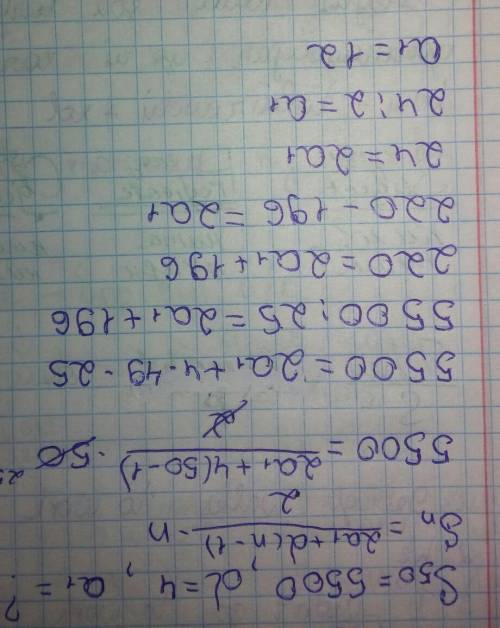 S50 = 5500, d = 4, a1 = ?
Sn = (2a1 + d(n-1))/2 · n
5500 = (2a1 + 4(50-1))/2 · 50 25
5500 = 2a1 + 4 · 49 · 25
5500 : 25 = 2a1 + 196
220 = 2a1 + 196
220 - 196 = 2a1
24 = 2a1
24 : 2 = a1
a1 = 12